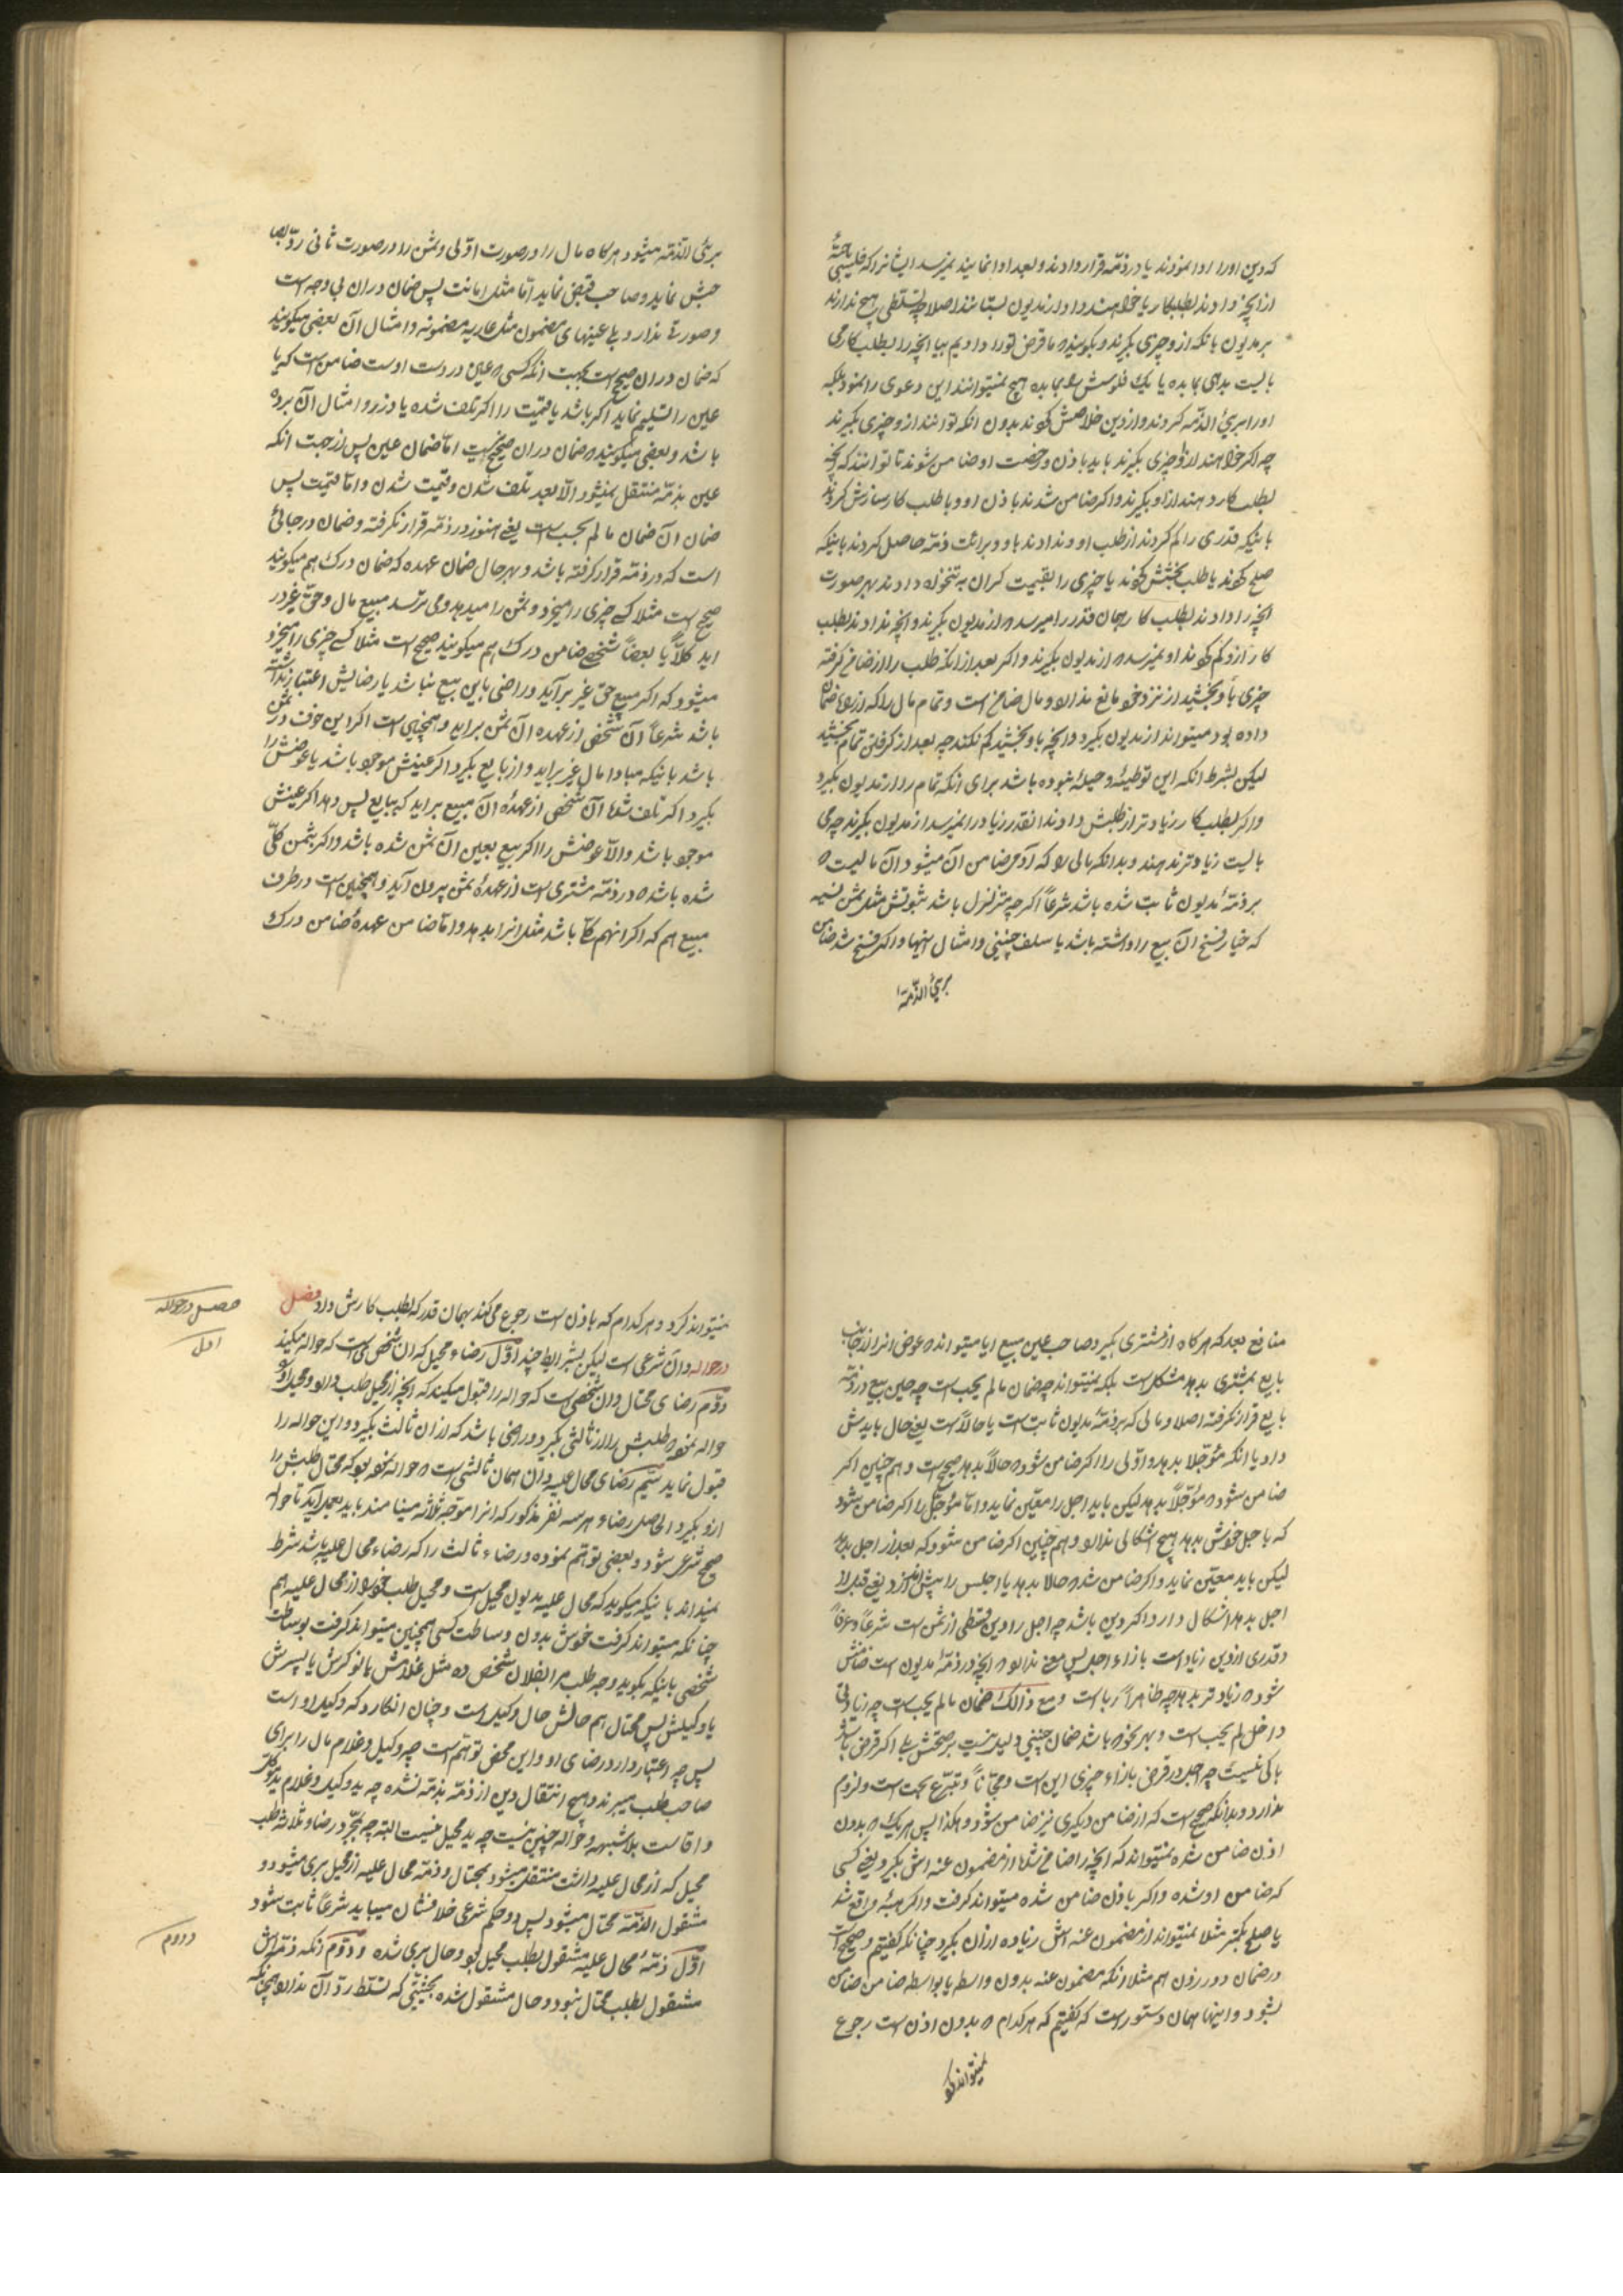 که دین او را ادا نمودند یا در ذمّه قرار دادند و بعد ادا نمایند نمیرسد ایشانرا که فلیسی باحتهٔ
از آنچه دادند بطلبکار یا خواهند داد از مدیون بستانند اصلا چه تسلّطی هیچ ندارند
بر مدیون بانکه ازو چیزی بگیرند و بگویند ما قرض تو را دادیم بیا آنچه را بطلبکار می
بایست بدهی بما بده یا یک فلوسش را بما بده هیچ نمیتوانند این دعوی را نمود بلکه
او را بریء الذّمه کردند و از دین خلاصش کردند بدون آنکه توانند ازو چیزی بگیرند
چه اگر خواهند ازو چیزی بگیرند باید باذن و رخصت او ضامن شوند تا توانند که آنچه
بطلبکار دهند ازاو بگیرند و اگر ضامن شدند باذن او و با طلبکار سازش کردند
باینکه قدری را کم کردند از طلب او و ندادند باو و برائت ذمّه حاصل کردند باینکه
صلح کردند یا طلب بخشش کردند یا چیزی را بقیمت گران به تنخواه دادند بهر صورت
آنچه را دادند بطلب کار همان قدر را میرسد از مدیون بگیرند و آنچه ندادند بطلب
کار از او کم کردند او نمیرسد از مدیون بگیرند و اگر بعد از انکه طلب را از ضامن گرفته
چیزی باو بخشید از نزد خود مانع ندارد و مال ضامن است و تمام مال را که از بابت ضمان
داده بود میتواند از مدیون بگیرد و آنچه باو بخشید کم نکند چه بعد از گرفتن تمام بخشید
لیکن بشرط انکه این توطئه و حیله نبوده باشد برای انکه تمام را از مدیون بگیرد
و اگر بطلب کار زیادتر از طلبش دادند انقدر زیاد را نمیرسد از مدیون بگیرند چه می
بایست زیادتر ندهند و بدانکه مالی را که آدمی ضامن آن میشود آن مالیست
بر ذمّهٔ مدیون ثابت شده باشد شرعاً اگر چه متزلزل باشد ثبوتش مثل ثمن نسیه
که خیار فسخ آن بیع را داشته باشد یا سلف چنینی و امثال اینها و اگر فسخ شد ضامن
بریء الذّمة
بریء الذّمّه میشود هر گاه مال را در صورت اوّلی و ثمن را در صورت ثانی ردّ بصا
حبش نماید و صاحب قبض نماید امّا مثل امانت پس ضمان دران بی وجه است
و صورتے ندارد بلے عینهای مضمون مثل عاریه مضمونه و امثال آن بعضی میگویند
که ضمان دران صحیح است بجهت انکه کسی عین در دست اوست ضامن است که یا
عین را تسلیم نماید اگر باشد یا قیمت را اگر تلف شده یا دزد و امثال آن برده
باشد و بعضی میگویند ضمان دران صحیح نیست امّا ضمان عین پس از جهت انکه
عین بذمّه منتقل نمیشود الّا بعد تلف شدن و قیمت شدن و امّا قیمت پس
ضمان آن ضمان ما لم یجب است یعنی هنوز در ذمّه قرار نگرفته و ضمان در جائی
است که در ذمّه قرار گرفته باشد و بهر حال ضمان عهده که ضمان درک هم میگویند
صحیح است مثلا کسے چیزی را میخرد و ثمن را میدهد و می ترسد مبیع مال و حقّ غیر در
اید کلّاً یا بعضاً شخصے ضامن درک هم میگویند صحیح است مثلا کسے چیزی را میخرد
میشود که اگر مبیع حق غیر برآید و راضی باین بیع نباشد یا رضایش اعتبار نداشته
باشد شرعاً آن شخص از عهده آن ثمن براید و همچنین است اگر این خوف در ثمن
باشد باینکه مبادا مال غیر براید و از بایع بگیرد اگر عینش موجود باشد یا عوضش را
بگیرد اگر تلف شد آن شخص از عهدهٔ آن مبیع براید که ببایع پس دهد اگر عینش
موجود باشد والّا عوضش را اگر بیع بعین آن ثمن شده باشد و اگر بثمن کلّی
شده باشد در ذمّه مشتری است از عهدهٔ ثمن بیرون آید و همچنین است در طرف
مبیع هم که اگر انهم کلّی باشد مثل انرا بدهد و امّا ضامن عهدهٔ ضامن درک
منافع بعد که هر گاه از مشتری بگیرد صاحب عین مبیع ایا میتواند عوض انرا از جانب
بایع بمشتری بدهد مشکل است بلکه نمیتواند چه ضمان ما لم یجب است چه حین بیع در ذمّه
بایع قرار نگرفته اصلا و مالی که بر ذمّهٔ مدیون ثابت است یا حالّا است یعنی حال بایدش
داد یا انکه مؤجّلا بدهد و اوّلی را اگر ضامن شود حالّاً بدهد صحیح است و هم چنین اگر
ضامن شود مؤجّلاً بدهد لیکن باید اجل را معیّن نماید و امّا مؤجّل را اگر ضامن شود
که باجل خودش بدهد هیچ اشکالی ندارد و هم چنین اگر ضامن شود که بعد از اجل بدهد
لیکن باید معیّن نماید و اگر ضامن شد حالا بدهد یا اجلش را پیش اندازد یعنی قبل از
اجل بدهد اشکال دارد اگر دین باشد چه اجل را دین قسطی از ثمن است شرعاً و عرفاً
و قدری از دین زیاد است بازاء اجل پس معنی ندارد آنچه در ذمّهٔ مدیون است ضامنش
شود زیادتر بدهد چه ظاهراً ربا است و مع ذالک ضمان ما لم یجب است چه زیادتی
داخل لم یجب است و بهر نحو باشد ضمان چنینی دلیل نیست بر صحّتش بلے اگر قرض باشد
باکی نیست چه اجل در قرض بازاء چیزی این است و مجّاناً و تبرّع بحت است و لزوم
ندارد و بدانکه صحیح است که از ضامن دیگری نیز ضامن شود و هکذا پس هر یک بدون
اذن ضامن شده نمیتواند که آنچه را ضامن شد از مضمون عنه اش بگیرد یعنی کسی
که ضامن او شده و اگر باذن ضامن شده میتواند گرفت و اگر هبهٔ واقع شد
یا صلح بکمتر مثلا نمیتواند از مضمون عنه اش زیاده ازان بگیرد چنانکه گفتیم و صحیح است
در ضمان دور زدن هم مثلا انکه مضمون عنه بدون واسطه یا بواسطه ضامن ضامن
بشود و اینها همان دستور است که گفتیم که هر کدام بدون اذن است رجوع
نمیتواند کرد
نمیتواند کرد و هر کدام که باذن است رجوع می کند بهمان قدر که بطلب کارش داد فصل
در حواله و ان شرعی است لیکن بشرایط چند اوّل رضاء محیل که ان شخصی است که حواله میکند
دوّم رضای محتال و ان شخصی است که حواله را قبول میکند که آنچه از محیل طلب دارد و محیل او را
حواله نموده طلبش را از ثالثی بگیرد و راضی باشد که از ان ثالث بگیرد و این حواله را
قبول نماید سیّم رضای محال علیه و ان همان ثالثی است حواله نموده بود که محتال طلبش را
ازو بگیرد الحاصل رضاء هر سه نفر مذکور که انرا موجبه ثلاثه مینامند باید بعمل آید تا حواله
صحیح شرعی شود و بعضی توهّم نموده و رضاء ثالث را که رضاء محال علیه باشد شرط
نمیداند باینکه میگوید که محال علیه مدیون محیل است و محیل طلب خود را از محال علیه هم
چنانکه میتواند گرفت خودش بدون وساطت کسی همچنین میتواند گرفت بوساطت
شخصی باینکه بگوید وجه طلب مرا بفلان شخص ده مثل غلامش یا نوکرش یا پسرش
یا وکیلش پس محتال هم حالش حال وکیل است و چنان انگارد که وکیل او است
پس چه اعتبار دارد رضای او و این محض توهّم است چه وکیل و غلام مال را برای
صاحب طلب میبرند و هیچ انتقال دین از ذمّه بذمّه نشده چه ید وکیل و غلام ید موکّل
و اقا است بلا شبهه و حواله چنین نیست چه ید محیل نیست البته چه بمجرّد رضاء ثلاثه طلب
محیل که از محال علیه داشت منتقل میشود بمحتال و ذمّه محال علیه از محیل بری میشود و
مشغول الذّمّه محتال میشود پس دو حکم شرعی خلافشان میباید شرعاً ثابت شود
اوّل ذمّهٔ محال علیه مشغول بطلب محیل بود و حال بری شده و دوّم انکه ذمّه اش
مشغول بطلب محتال نبود و حال مشغول شده بحیثیتی که تسلّط ردّ آن ندارد همچنانکه
فصل در حواله
اول
دوم